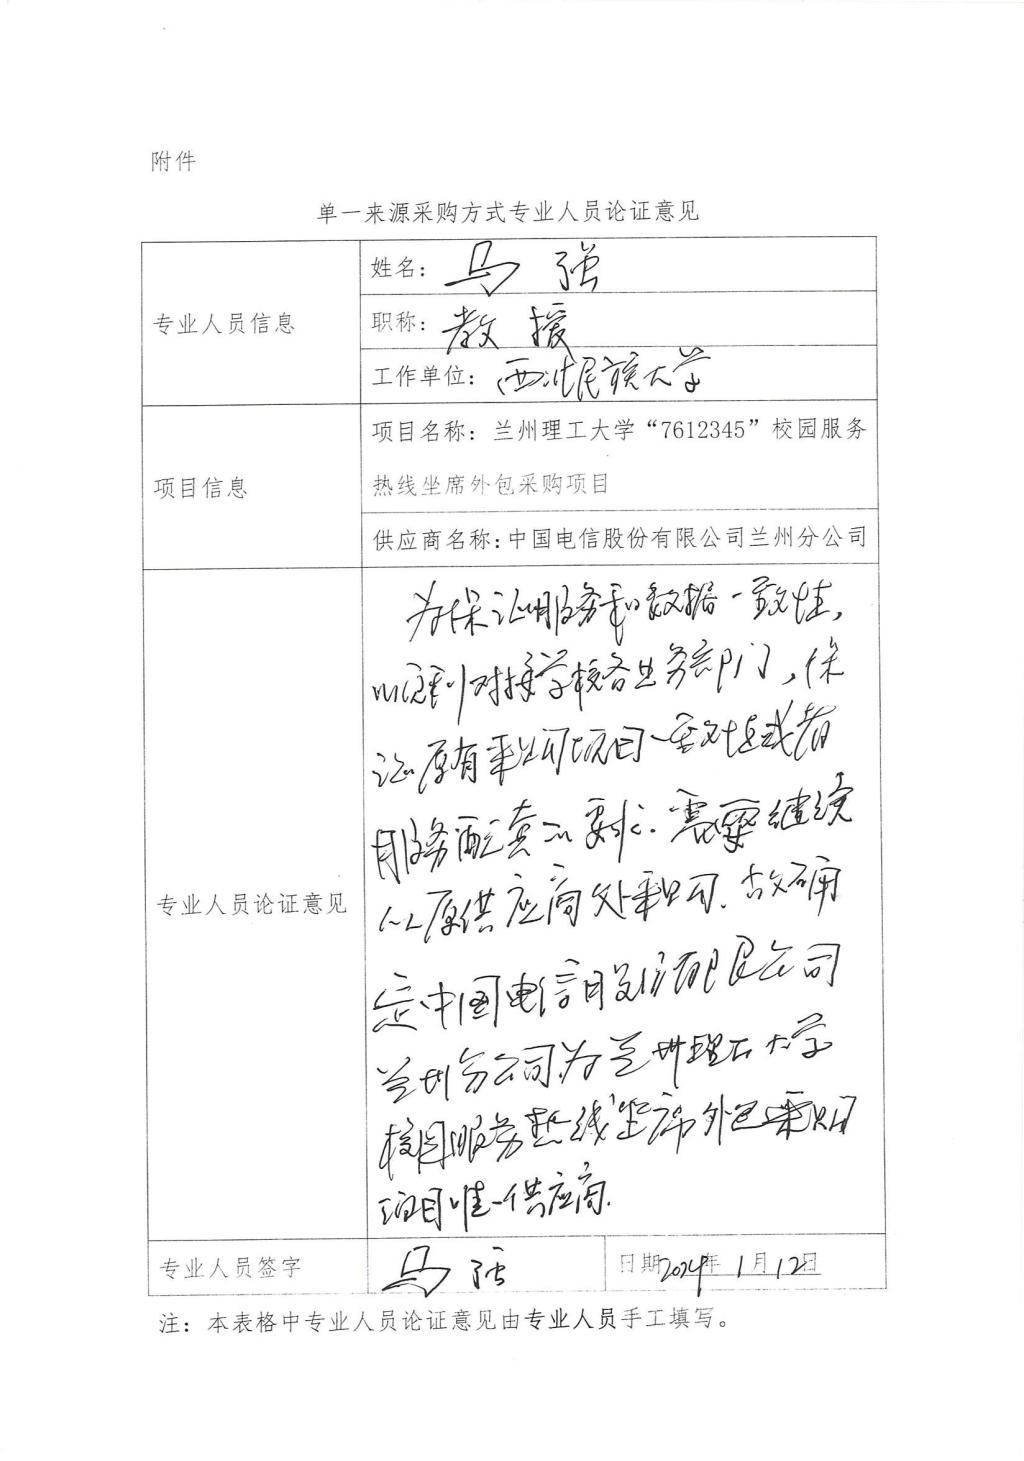 附件
单一来源采购方式专业人员论证意见
专业人员信息
姓名：马强
职称：教授
工作单位：西北民族大学
项目信息
项目名称：兰州理工大学“7612345”校园服务
热线坐席外包采购项目
供应商名称:中国电信股份有限公司兰州分公司
专业人员论证意见
为保证服务和数据一致性，
以便利对接学校各业务部门，保
证原有采购项目一致性或者
服务配套的要求．需要继续
从原供应商处采购．故确
定中国电信股份有限公司
兰州分公司为兰州理工大学
校园服务热线坐席外包采购
项目唯一供应商．
专业人员签字
马强
日期2024年1月12日
注：本表格中专业人员论证意见由专业人员手工填写。